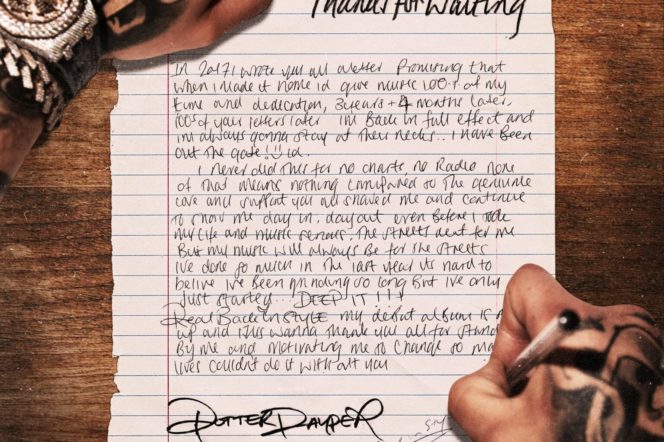 Thanks for waiting
In 2017 I wrote you all a letter Promising that
when I made it home id give music 100% of my
time and dedication, 3 years + 4 months later,
100s of your letters later im Back in full effect and
im always gonna stay at their necks.. I have been
out the gate! id.
I never did this for no charts, no Radio none
of that means nothing compared to the genuine
love and support you all showed me and continue
to show me day in. day out even Before I took
my life and music serious. The streets dont for me
But my music will always Be for the streets
Ive done so much in the last year its hard to
belive ive been grinding so long But ive only
Just started... DEEP IT !!!
Real Back In STYLE my debut album is
up and I Just wanna thank you all for stand
By me and motivating me to change so ma
lives couldn't do it without you
POTTER PAYPER